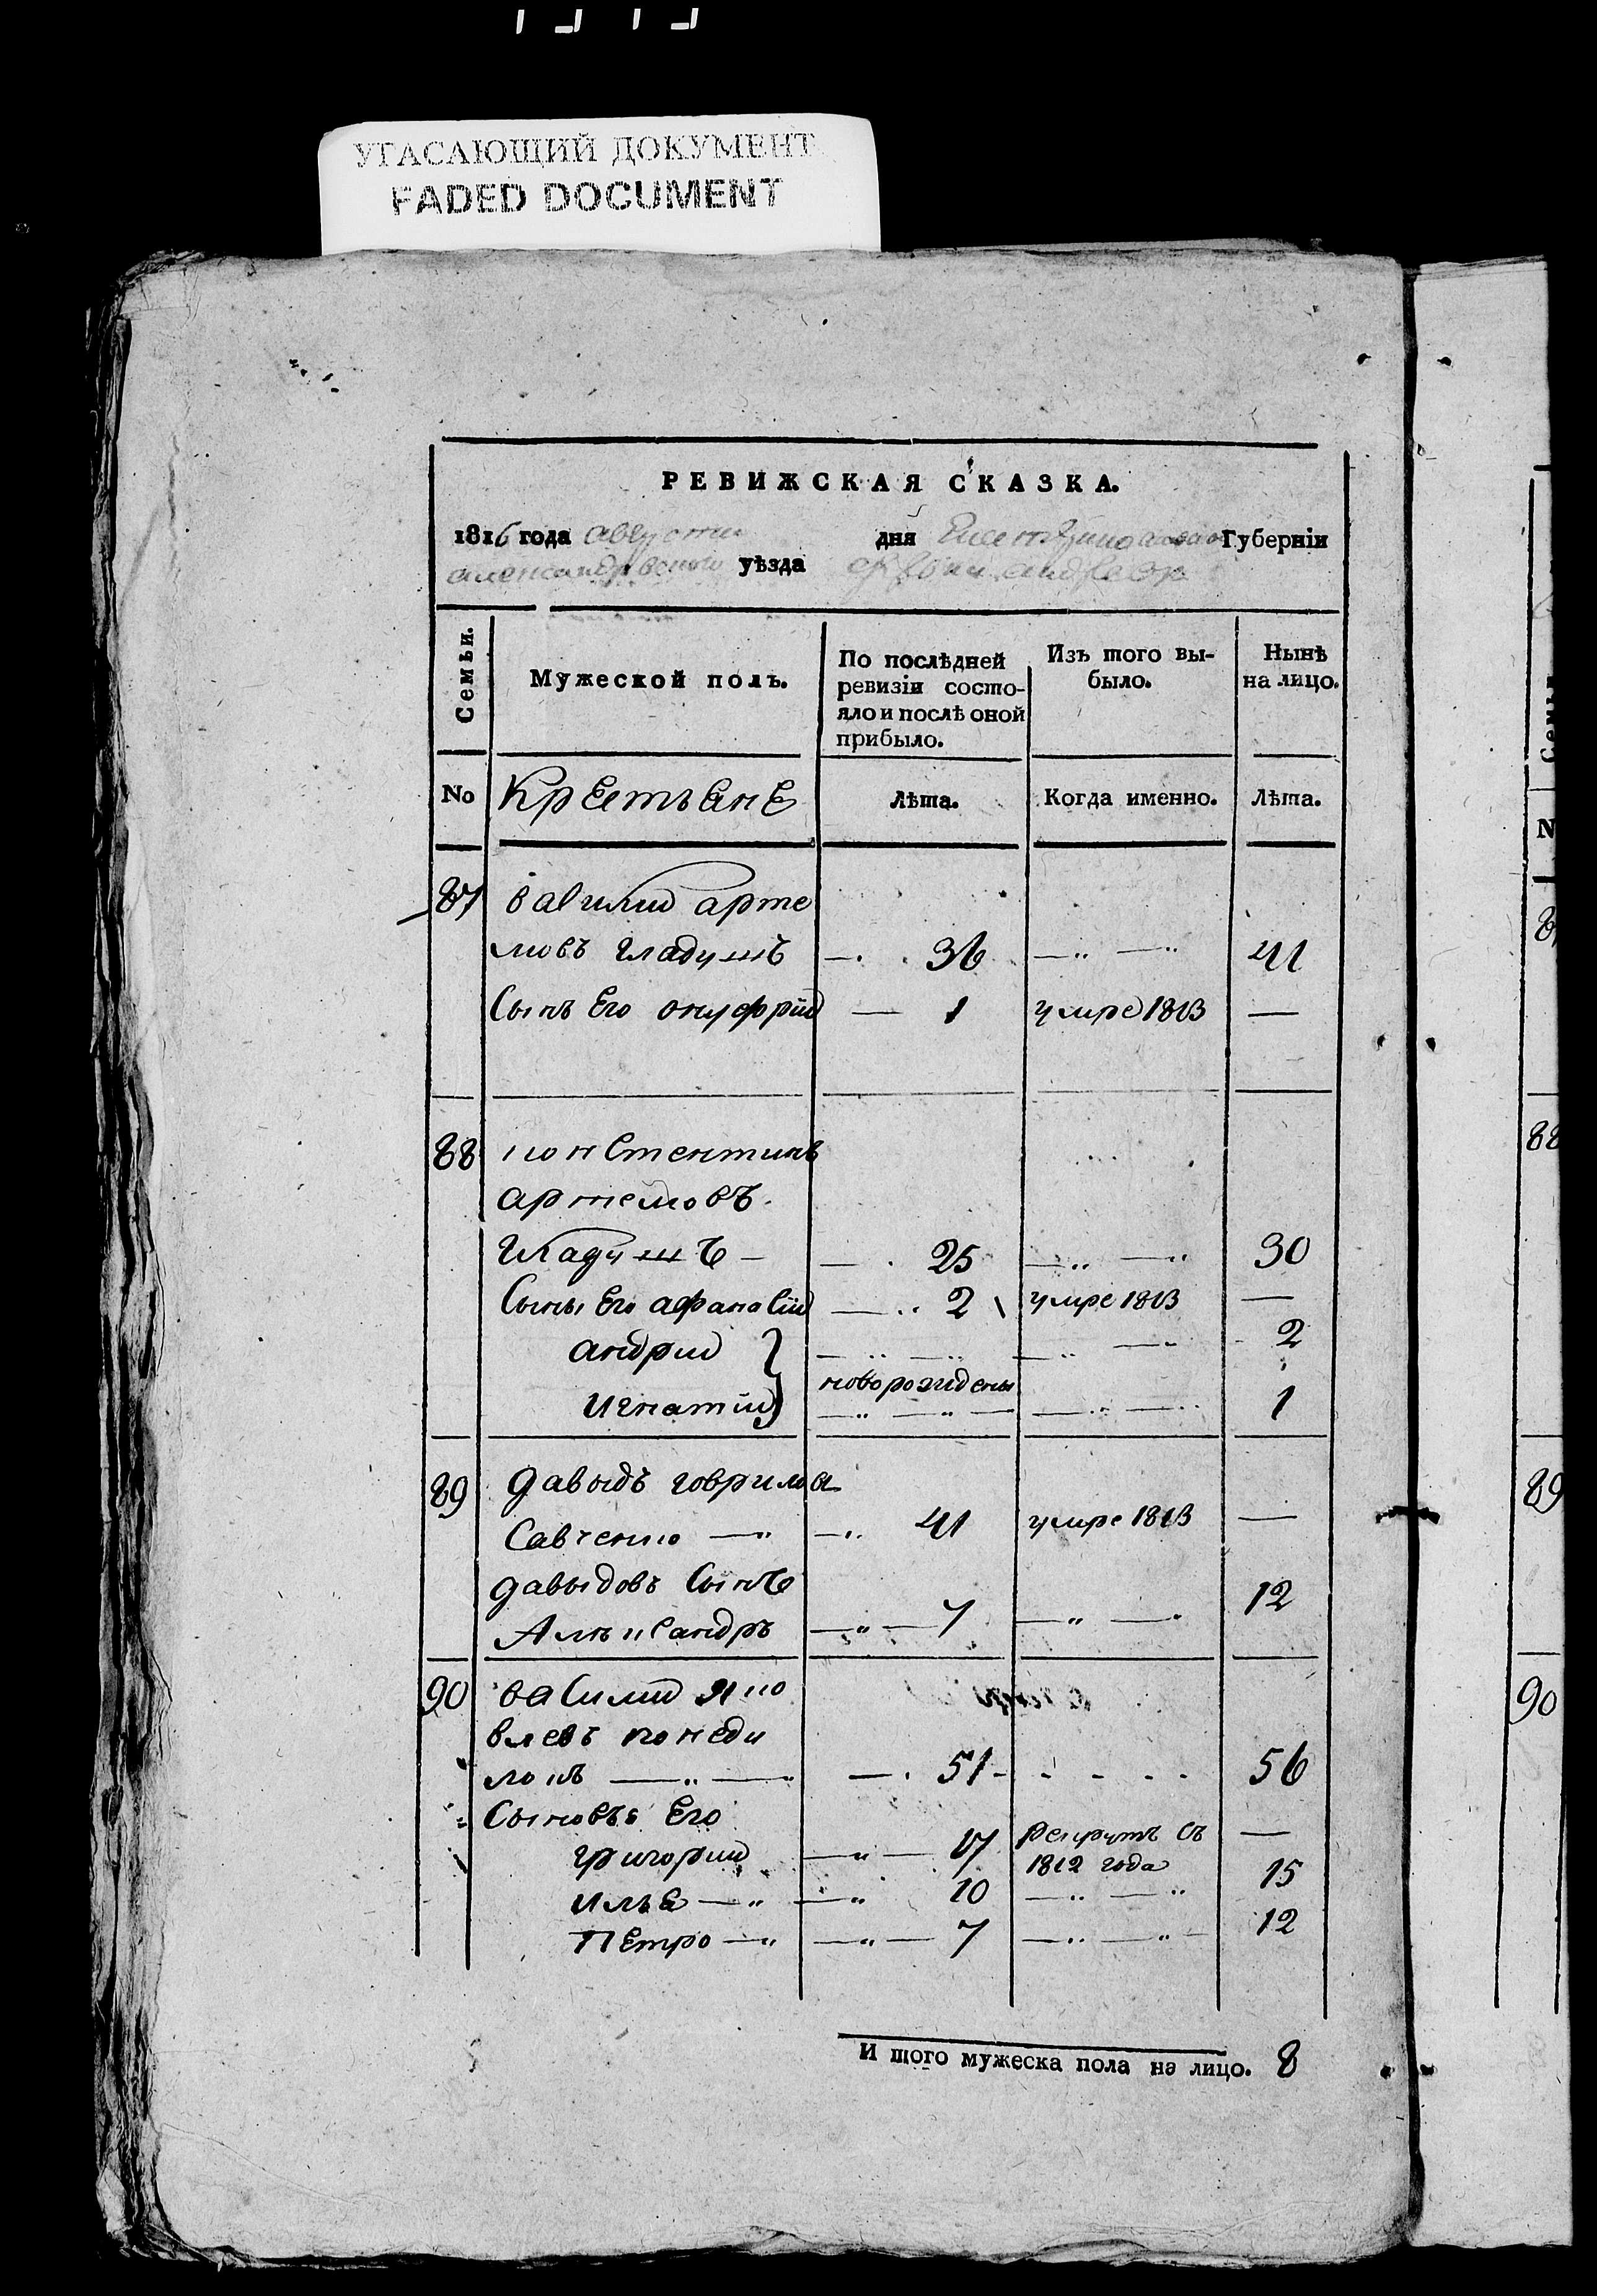 УГАСАЮЩИЙ ДОКУМЕНТ
FADED DOCUMENT
РЕВИЖСКАЯ СКАЗКА.
1816 года августа дня Губерніи
александровскаго уѣзда
Семьи.
Мужеской полъ.
По послѣдней ревизіи состо-яло и послѣ оной прибыло.
Изъ того вы-было.
Нынѣ на лицо.
No Крестьяне Лѣта. Когда именно. Лѣта.
87 василий арте
мовъ гладушъ 36 41
Сынъ Его онуфрій 1 умре 1813 —
88 констентинъ
артемовъ
гладушъ 25 30
Сыны Его афанасій 2 умре 1813 —
андрий 2
новорождены
игнатій 1
89 давыдъ говриловъ
Савченко 41 умре 1813 —
давыдовъ Сынъ
Александръ 7 12
90 василий яко
влевъ понеди
локъ 51 56
Сыновья Его
григорий 17 рекрутъ съ —
1812 года
илья 10 15
Петро 7 12
И того мужеска пола на лицо. 8
Семьи
N
87
88
89
90